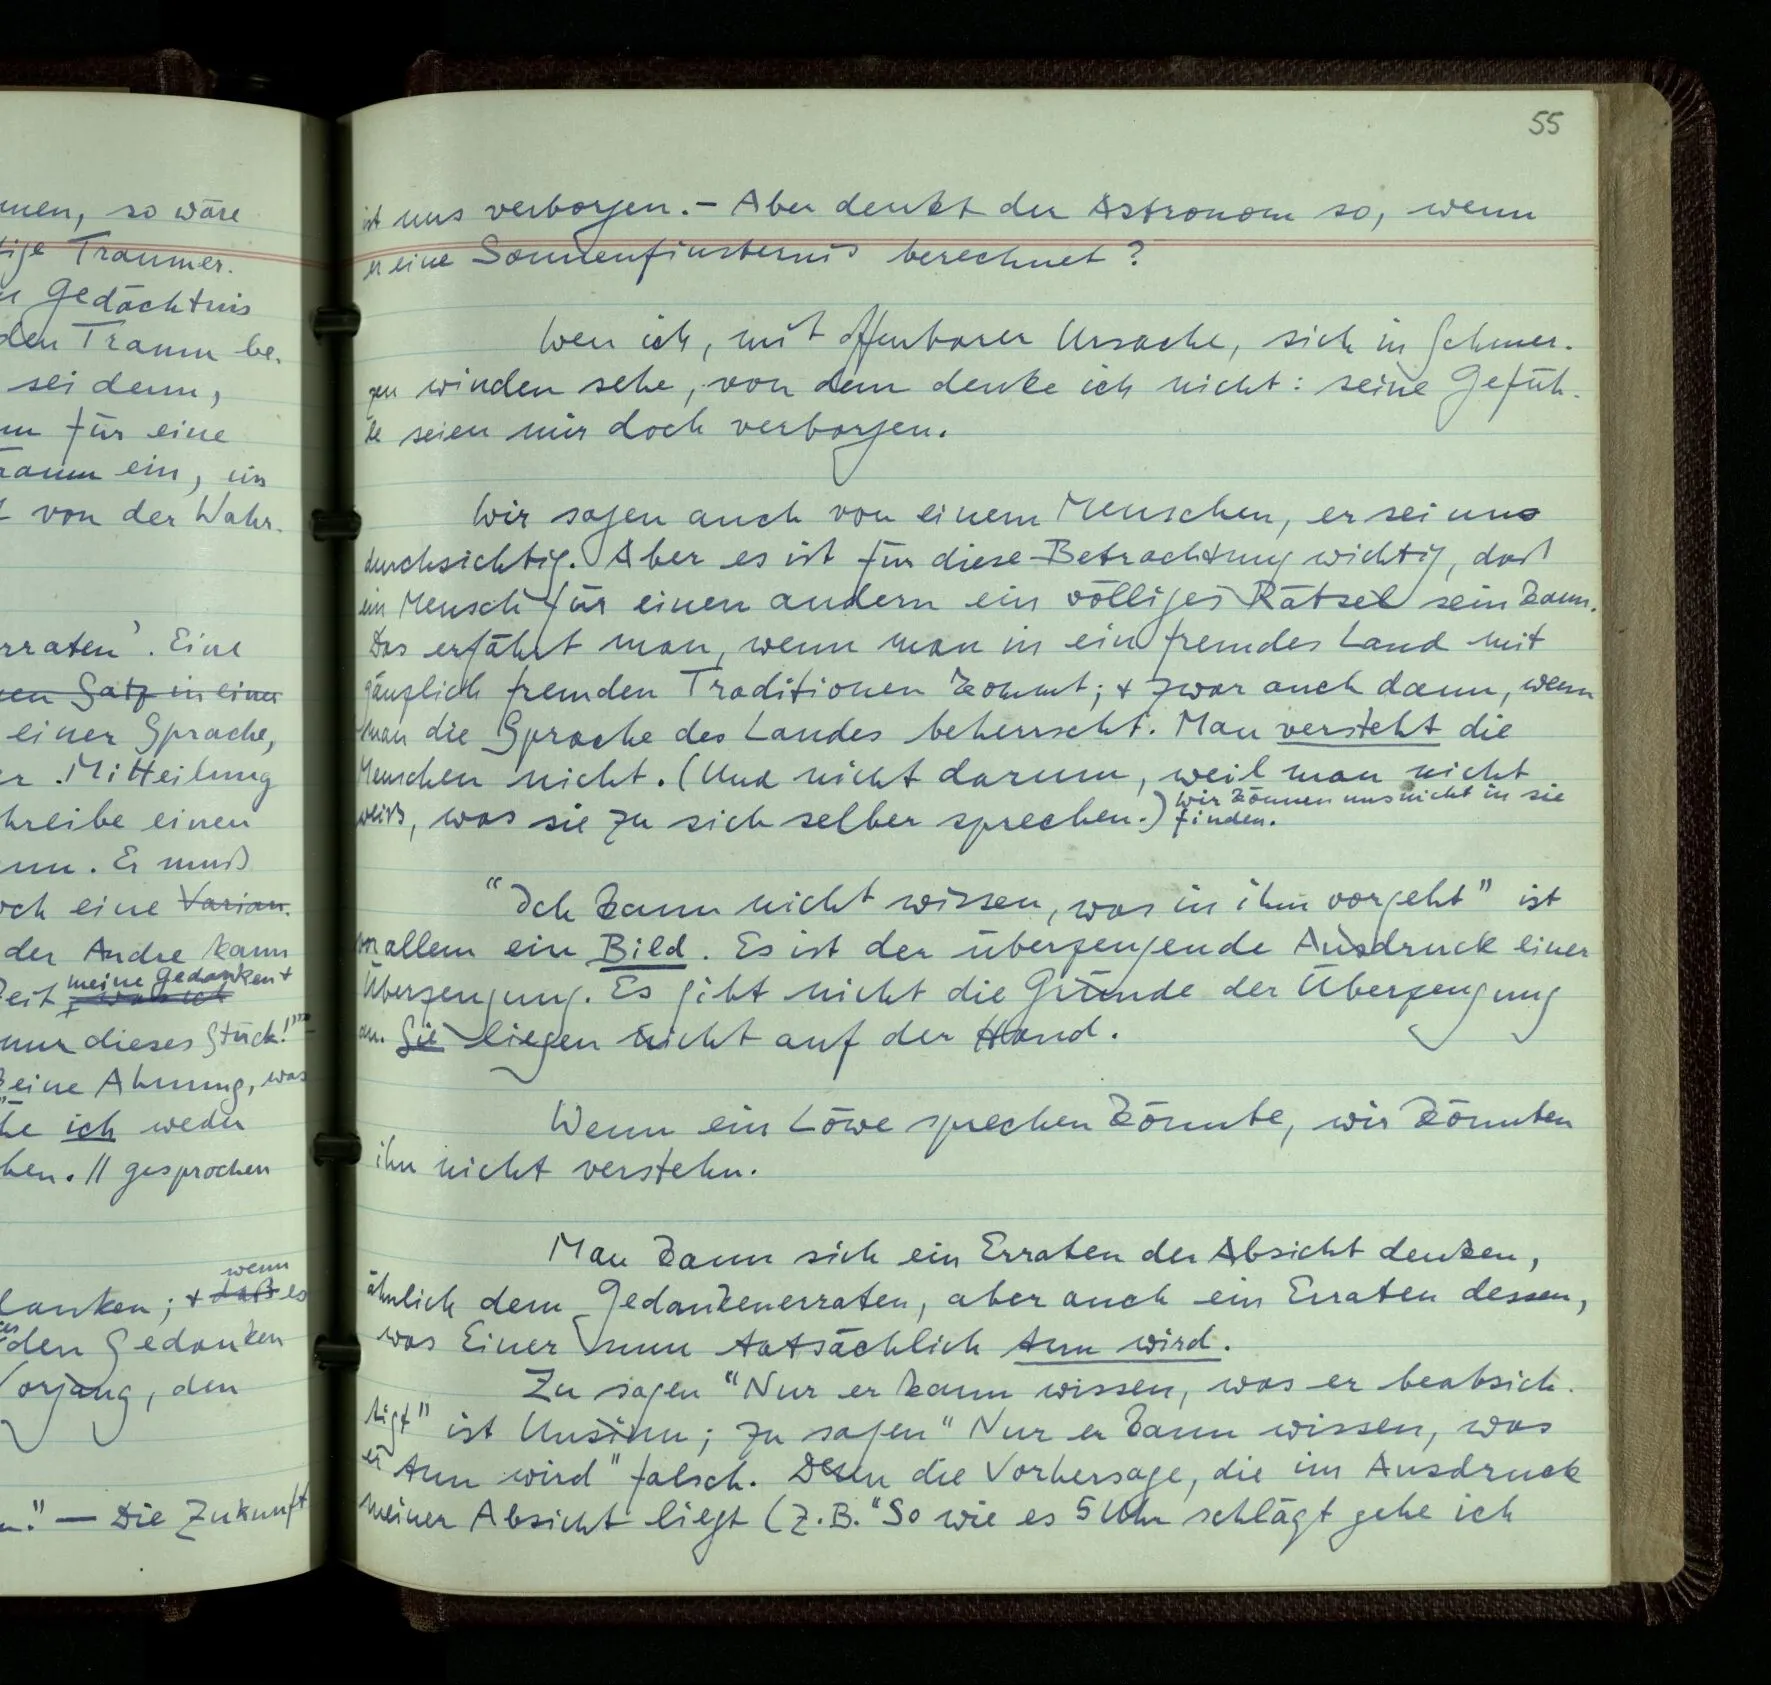 men, so wäre
tige Träumer.
Gedächtnis
den Traum be-
sei denn,
für eine
Traum ein, in
von der Wahr-
erraten'. Eine
nen Satz in einer
einer Sprache,
er Mitteilung
schreibe einen
nn. Er muß
och eine Varian-
der Andre kann
meine Gedanken +
Zeit
nur dieses Stück!""
keine Ahnung, was
ich weder
hen. // gesprochen
wenn
danken; + daß es
den Gedanken
Vorgang, den
" — Die Zukunft
55
ist uns verborgen. – Aber denkt der Astronom so, wenn
er eine Sonnenfinsternis berechnet?
Wen ich, mit offenbarer Ursache, sich in Schmer-
zen winden sehe, von dem denke ich nicht: seine Gefüh-
le seien mir doch verborgen.
Wir sagen auch von einem Menschen, er sei uns
durchsichtig. Aber es ist für diese Betrachtung wichtig, daß
ein Mensch für einen andern ein völliges Rätsel sein kann.
Das erfährt man, wenn man in ein fremdes Land mit
gänzlich fremden Traditionen kommt; + zwar auch dann, wenn
man die Sprache des Landes beherrscht. Man versteht die
Menschen nicht. (Und nicht darum, weil man nicht
weiß, was sie zu sich selber sprechen.) Wir können uns nicht in sie
finden.
"Ich kann nicht wissen, was in ihm vorgeht" ist
vor allem ein Bild. Es ist der überzeugende Ausdruck einer
Überzeugung. Es gibt nicht die Gründe der Überzeugung
an. Sie liegen nicht auf der Hand.
Wenn ein Löwe sprechen könnte, wir könnten
ihn nicht verstehn.
Man kann sich ein Erraten der Absicht denken,
ähnlich dem Gedankenerraten, aber auch ein Erraten dessen,
was Einer nun tatsächlich tun wird.
Zu sagen "Nur er kann wissen, was er beabsich-
tigt" ist Unsinn; zu sagen "Nur er kann wissen, was
er tun wird" falsch. Denn die Vorhersage, die im Ausdruck
meiner Absicht liegt (z.B. "So wie es 5 Uhr schlägt gehe ich